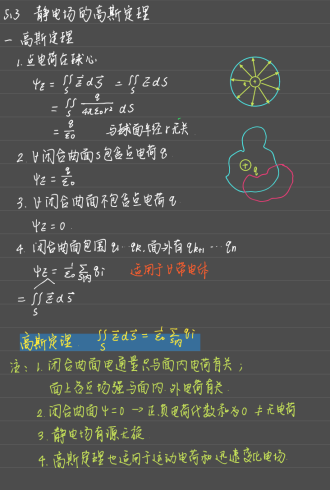 5.3 静电场的高斯定理
一 高斯定理
1. 点电荷在球心
ΨE = ∬S E⃗ dS⃗ = ∬ E dS
= ∬S q/4πε0r² dS
= q/ε0 与球面半径r无关
q
2. ∀闭合曲面S包含点电荷q
ΨE = q/ε0
3. ∀闭合曲面不包含点电荷q
ΨE = 0.
4. 闭合曲面包围q1…qk, 面外有qk+1…qn
ΨE = 1/ε0 ΣS内 qi 适用于∀带电体
= ∬S E⃗ dS⃗
高斯定理 ∬S E⃗ dS⃗ = 1/ε0 ΣS内 qi
注: 1. 闭合曲面电通量只与面内电荷有关;
面上各点场强与面内.外电荷有关.
2. 闭合曲面Ψ=0 → 正.负电荷代数和为0 ≠ 无电荷
3. 静电场有源无旋
4. 高斯定理也适用于运动电荷和迅速变化电场